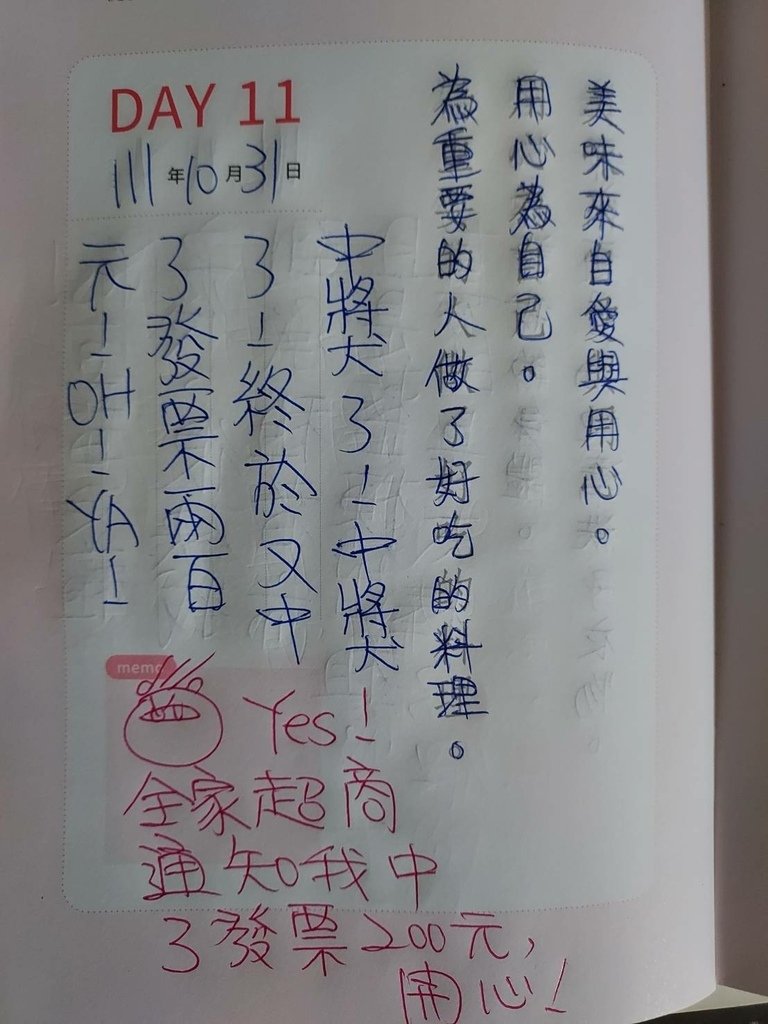 DAY 11
111年10月31日
美味來自愛與用心。
用心為自己。
為重要的人做了好吃的料理。
中獎了！中獎
了！終於又中
了發票兩百
元！OH！YA！
memo
Yes！
全家超商
通知我中
了發票200元，
開心！